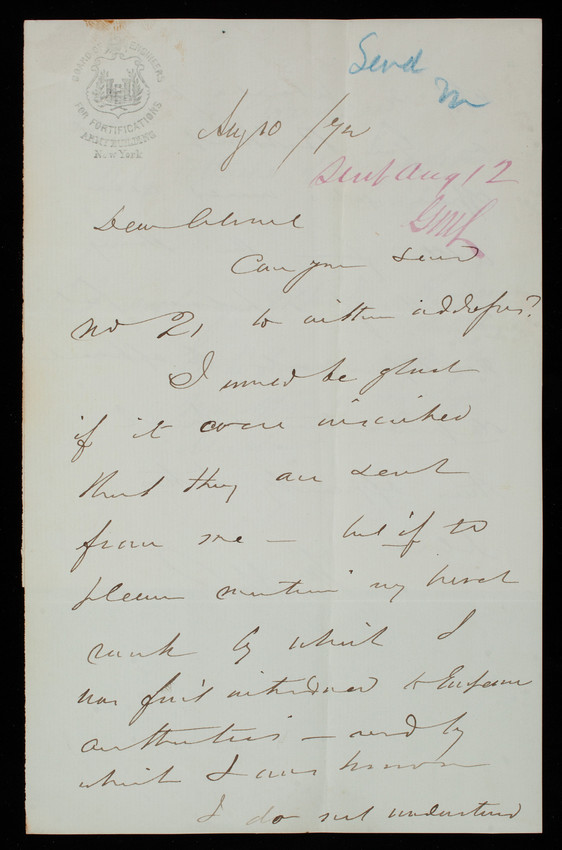 BOARD OF ENGINEERS
FOR FORTIFICATIONS
ARMY BUILDING
New York
Send
Aug 10 /72
Sent Aug 12
GML
Dear Colonel
Can you send
No 21 to within address?
I would be glad
if it were inscribed
that they are sent
from me — but if so
please mention my brevet
rank by which I
was first introduced to European
authorities — and by
which I am known
I do not understand